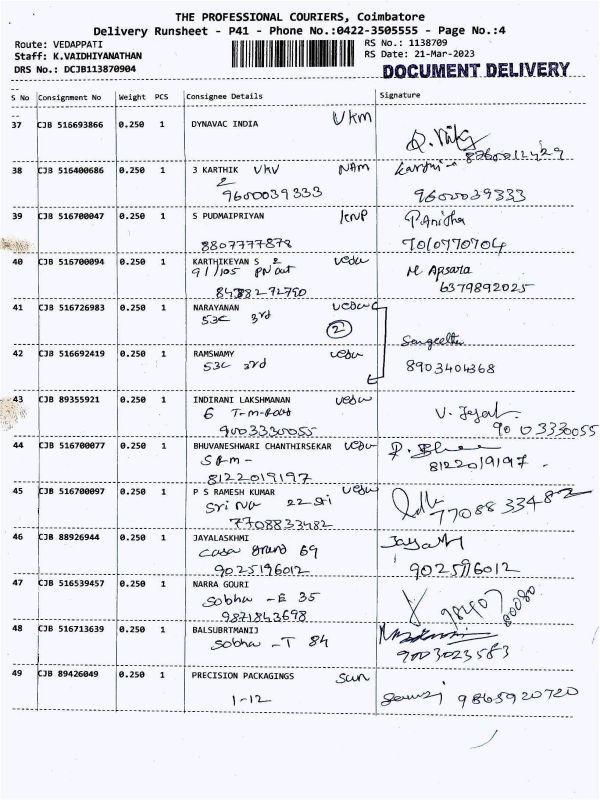 THE PROFESSIONAL COURIERS, Coimbatore
Delivery Runsheet - P41 - Phone No.:0422-3505555 - Page No.:4
Route: VEDAPPATI
Staff: K.VAIDHIYANATHAN
DRS No.: DCJB113870904
RS No.: 1138709
RS Date: 21-Mar-2023
DOCUMENT DELIVERY
S No Consignment No Weight PCS Consignee Details Signature
37 CJB 516693866 0.250 1 DYNAVAC INDIA Vkm
38 CJB 516400686 0.250 1 J KARTHIK VKV NAm
2
9600039333 9600039333
39 CJB 516700047 0.250 1 S PUDMAIPRIYAN KNP P Anitha
8807777878 7010770704
40 CJB 516700094 0.250 1 KARTHIKEYAN S 2 vedu
91/105 PN out M Apsara
6379892025
41 CJB 516726983 0.250 1 NARAYANAN vedu
53C 3rd
2
42 CJB 516692419 0.250 1 RAMSWAMY vedu Sangeetha
53C 3rd 8903404368
43 CJB 89355921 0.250 1 INDIRANI LAKSHMANAN vedu
6 T-m-Road V. Jeyal
9003330055 9003330055
44 CJB 516700077 0.250 1 BHUVANESHWARI CHANTHIRSEKAR vedu
SRM-
8122019197 8122019197
45 CJB 516700097 0.250 1 P S RAMESH KUMAR vedu
Sri Na 22 Sri
7708833482 7708833482
46 CJB 88926944 0.250 1 JAYALASKHMI
Casa grand 69
9025196012 9025196012
47 CJB 516539457 0.250 1 NARRA GOURI
Sobha -E 35
9871843698 98407 80080
48 CJB 516713639 0.250 1 BALSUBRTMANIJ
Sobha -T 84
9003023583
49 CJB 89426049 0.250 1 PRECISION PACKAGINGS Sun
1-12 9865920720